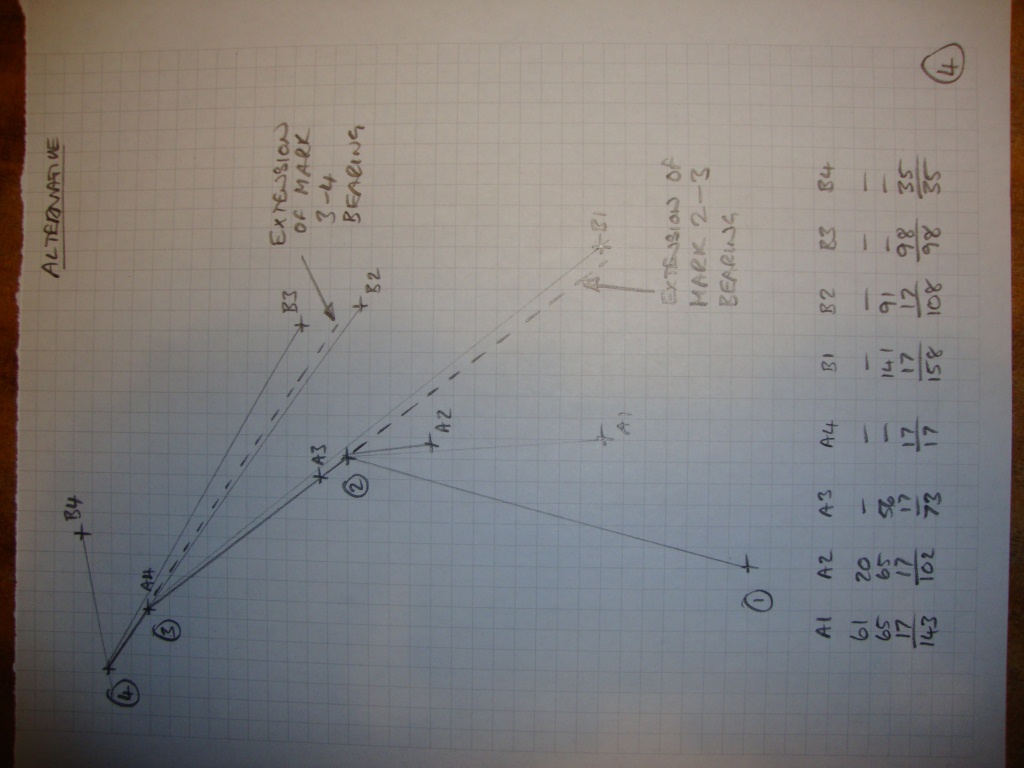 ALTERNATIVE
B4
4
A4
3
EXTENSION
OF MARK
3-4
BEARING
B3
A3
2
B2
A2
B1
A1
EXTENSION OF
MARK 2-3
BEARING
1
A1 A2 A3 A4 B1 B2 B3 B4
61 20 – – – – – –
65 65 56 – 141 91 – –
17 17 17 17 17 17 98 35
143 102 73 17 158 108 98 35
4